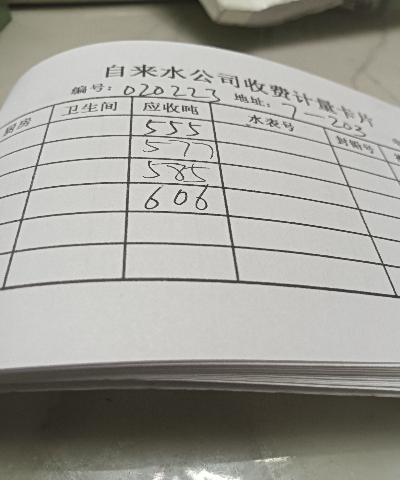 自来水公司收费计量卡片
编号: 020223 地址: 7-203
厨房 卫生间 应收吨 水表号 封铅号
555
577
585
606